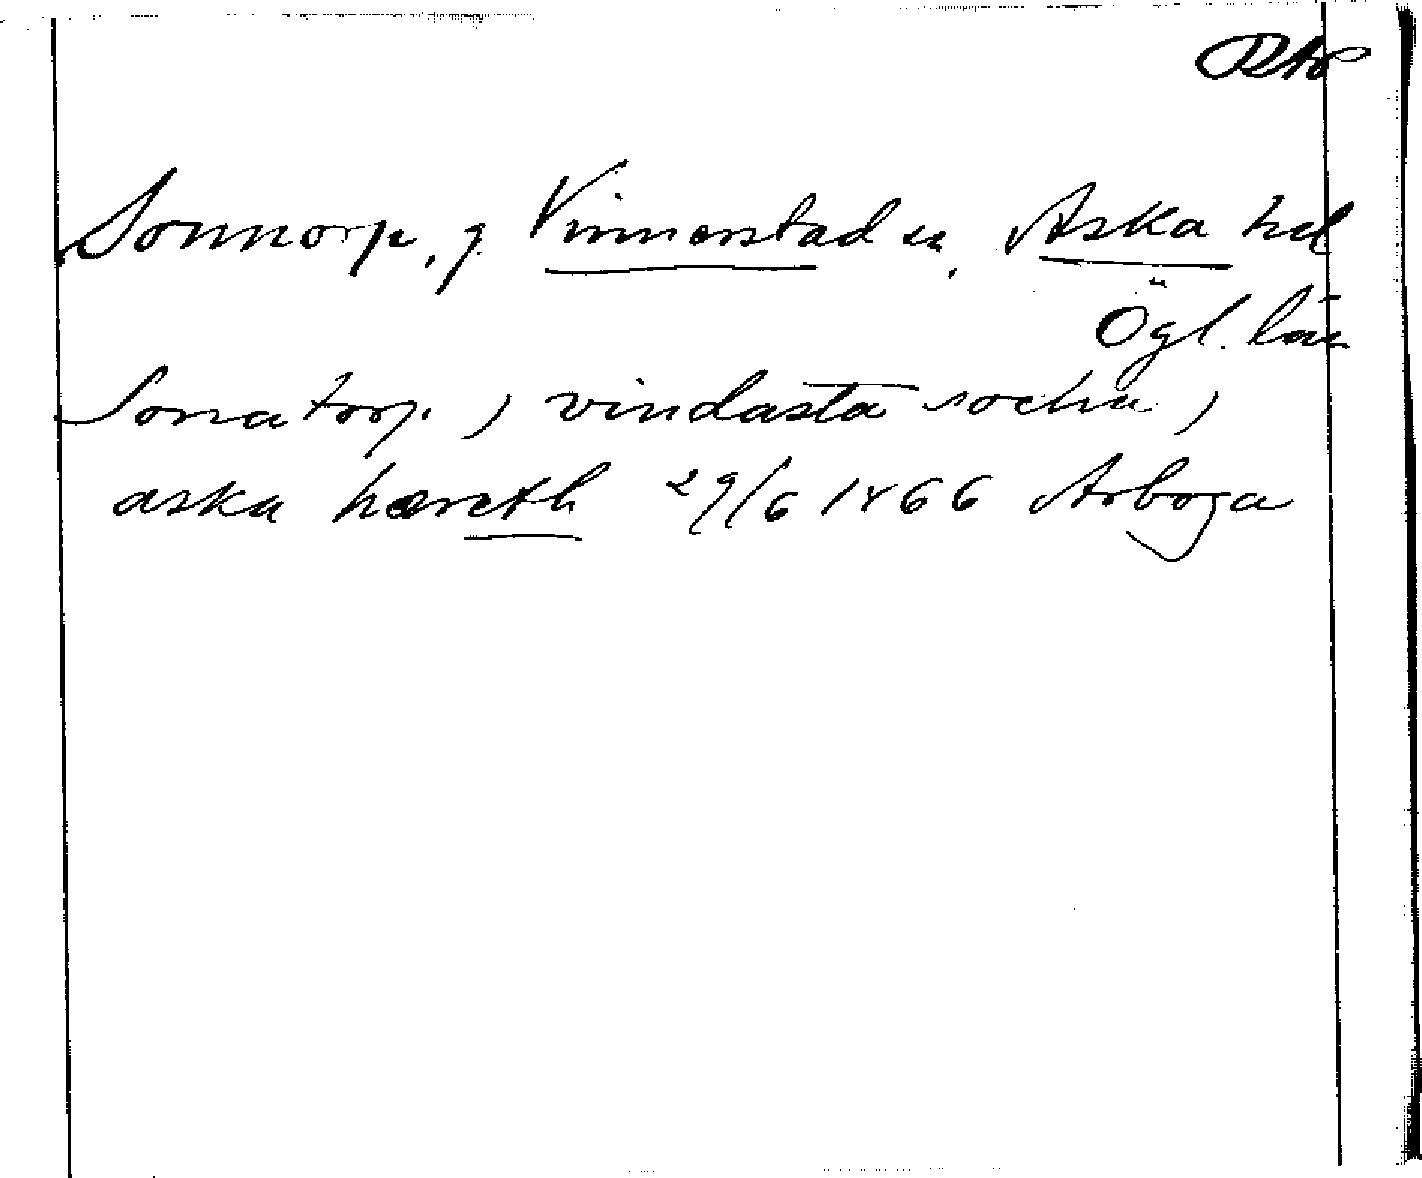 RAP
Sonnorp, g. Vinnerstad sn, Aska hd
Ögl. län
Sonatorp, vindasta sochn,
aska hæreth 29/6 1466 Arboga